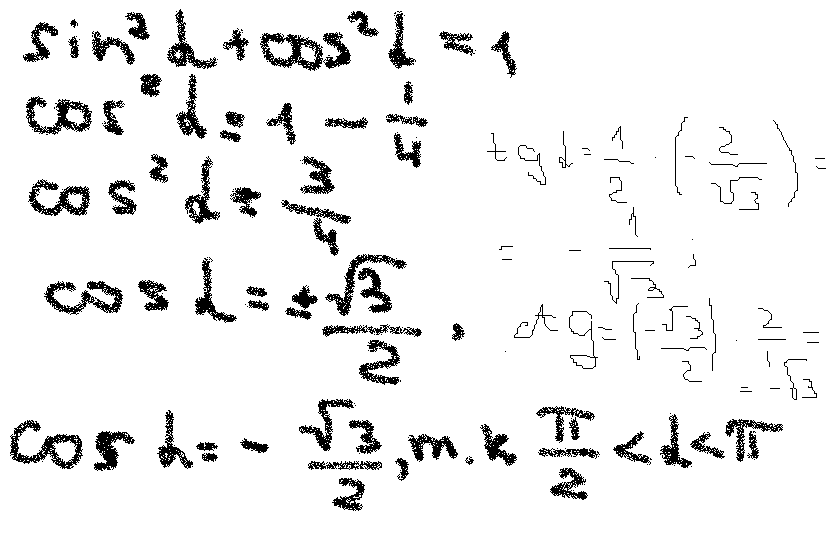 sin²α+cos²α=1
cos²α=1-1/4
cos²α=3/4
cos α=±√3/2,
cos α=-√3/2, т.к π/2<α<π
tg α=1/2·(-2/√3)=
=-1/√3;
ctg=(-√3/2)·2/1=
=-√3